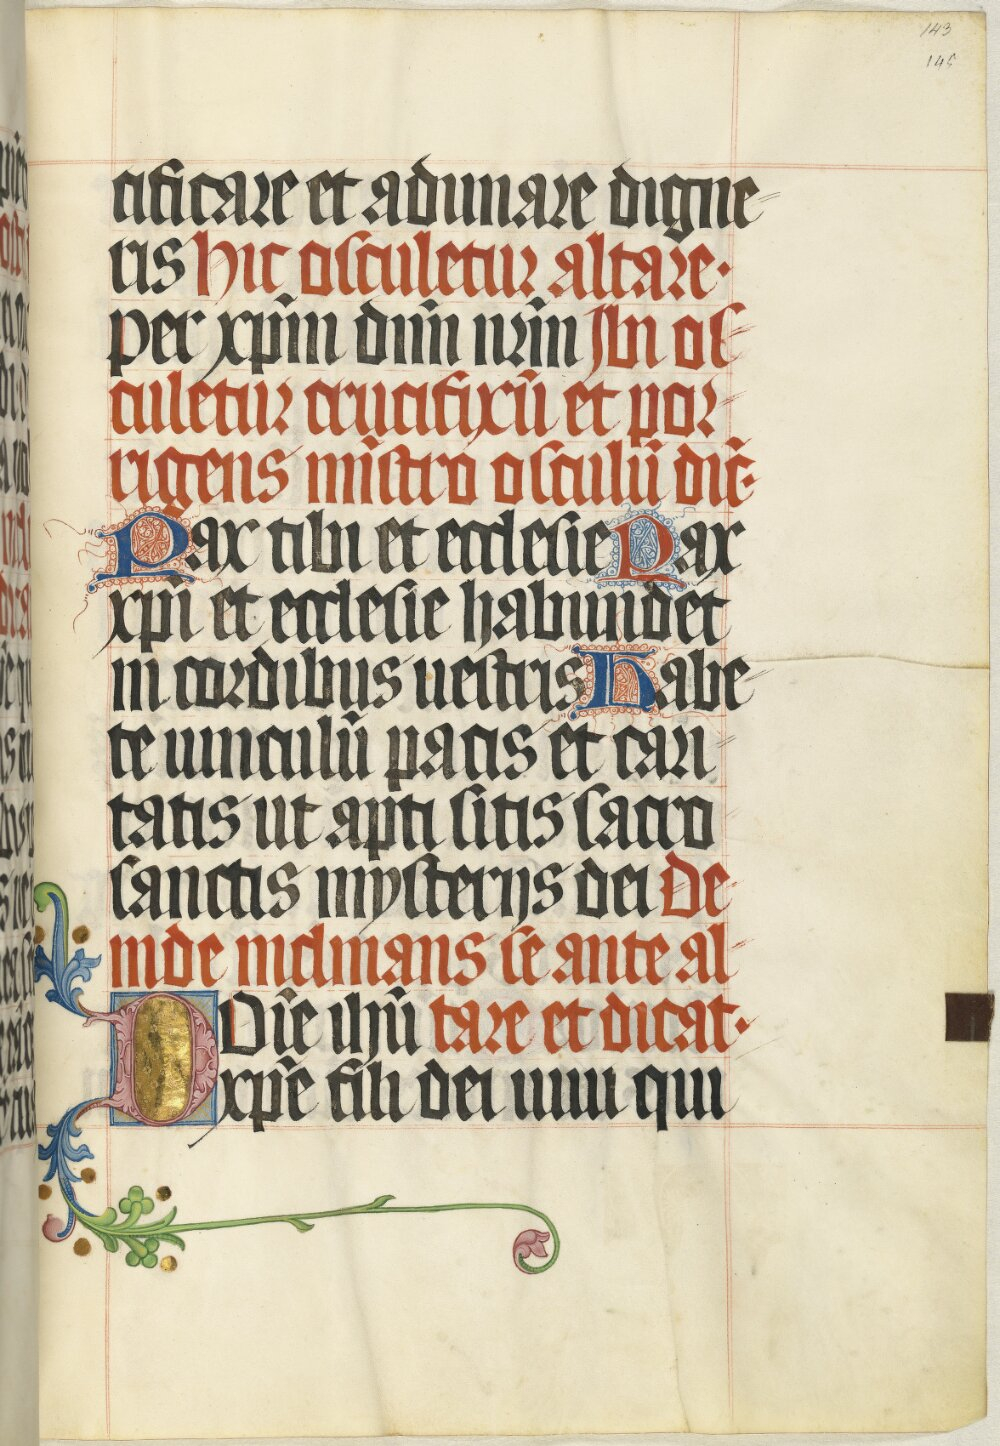 143
145
cificare et adunare digne-
ris hic osculetur altare·
per xp̄m dn̄m nr̄m Jbn os-
culetur crucifixū et por-
rigens mīstro osculū dic̄·
Pax tibi et ecclesie Pax
xpī et ecclesie habundet
in cordibus uestris Habe-
te uinculū pacis et cari-
tatis ut apti sitis sacro
sanctis mysterijs dei De-
inde inclinans se ante al-
Dn̄e ihū tare et dicat·
xp̄e fili dei uiui qui